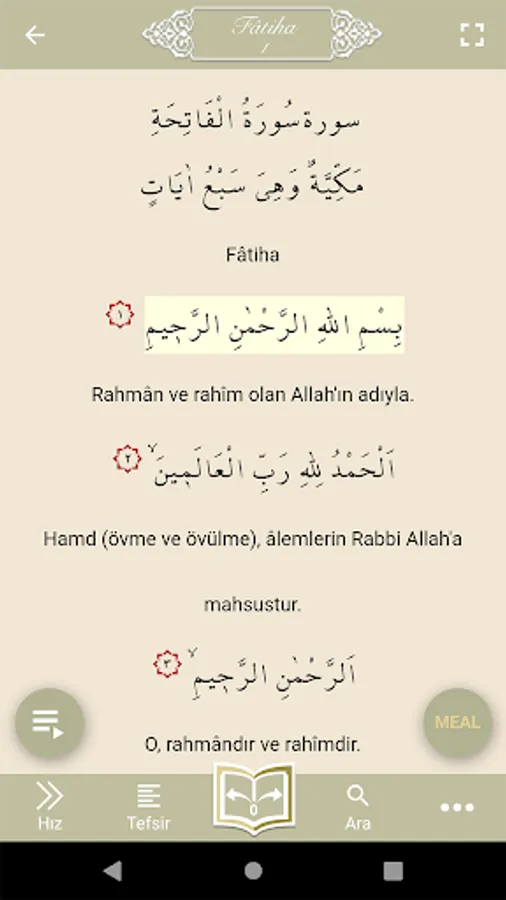 Fâtiha
1
سورة سُورَةُ الْفَاتِحَةِ
مَكِّيَّةٌ وَهِىَ سَبْعُ اٰيَاتٍ
Fâtiha
بِسْمِ اللّٰهِ الرَّحْمٰنِ الرَّح۪يمِ ١
Rahmân ve rahîm olan Allah'ın adıyla.
اَلْحَمْدُ لِلّٰهِ رَبِّ الْعَالَم۪ينَۙ ٢
Hamd (övme ve övülme), âlemlerin Rabbi Allah'a
mahsustur.
اَلرَّحْمٰنِ الرَّح۪يمِۙ ٣
O, rahmândır ve rahîmdir.
MEAL
Hız
Tefsir
0
Ara